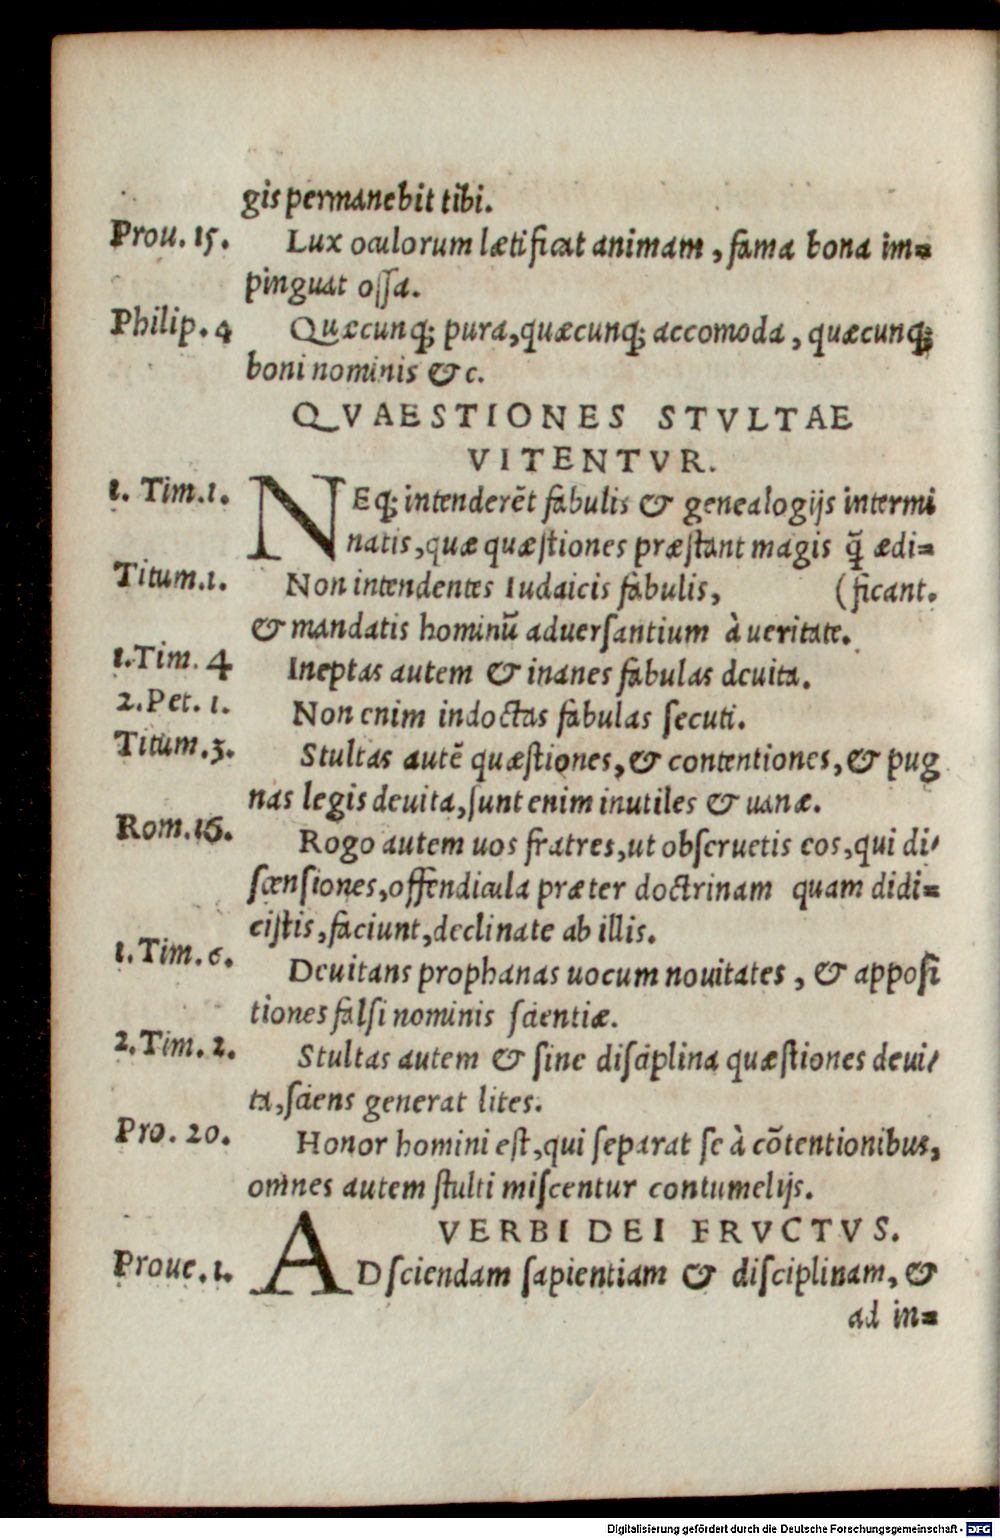 gis permanebit tibi.
Prou. 15. Lux oculorum lætificat animam, fama bona im=
pinguat ossa.
Philip. 4 Quæcunq; pura, quæcunq; accomoda, quæcunq;
boni nominis & c.
QVAESTIONES STVLTAE
VITENTVR.
1. Tim. 1. NEq; intenderẽt fabulis & genealogijs intermi
natis, quæ quæstiones præstant magis q̃ ædi=
Titum. 1. Non intendentes Iudaicis fabulis, (ficant.
& mandatis hominũ aduersantium à ueritate.
1. Tim. 4 Ineptas autem & inanes fabulas deuita.
2. Pet. 1. Non enim indoctas fabulas secuti.
Titum. 3. Stultas autẽ quæstiones, & contentiones, & pug
nas legis deuita, sunt enim inutiles & uanæ.
Rom. 16. Rogo autem uos fratres, ut obseruetis eos, qui di/
scensiones, offendicula præter doctrinam quam didi=
cistis, faciunt, declinate ab illis.
1. Tim. 6. Deuitans prophanas uocum nouitates, & apposi
tiones falsi nominis scientiæ.
2. Tim. 2. Stultas autem & sine disciplina quæstiones deui/
ta, sciens generat lites.
Pro. 20. Honor homini est, qui separat se à cõtentionibus,
omnes autem stulti miscentur contumelijs.
VERBI DEI FRVCTVS.
Proue. 1. ADsciendam sapientiam & disciplinam, &
ad in=
Digitalisierung gefördert durch die Deutsche Forschungsgemeinschaft - DFG